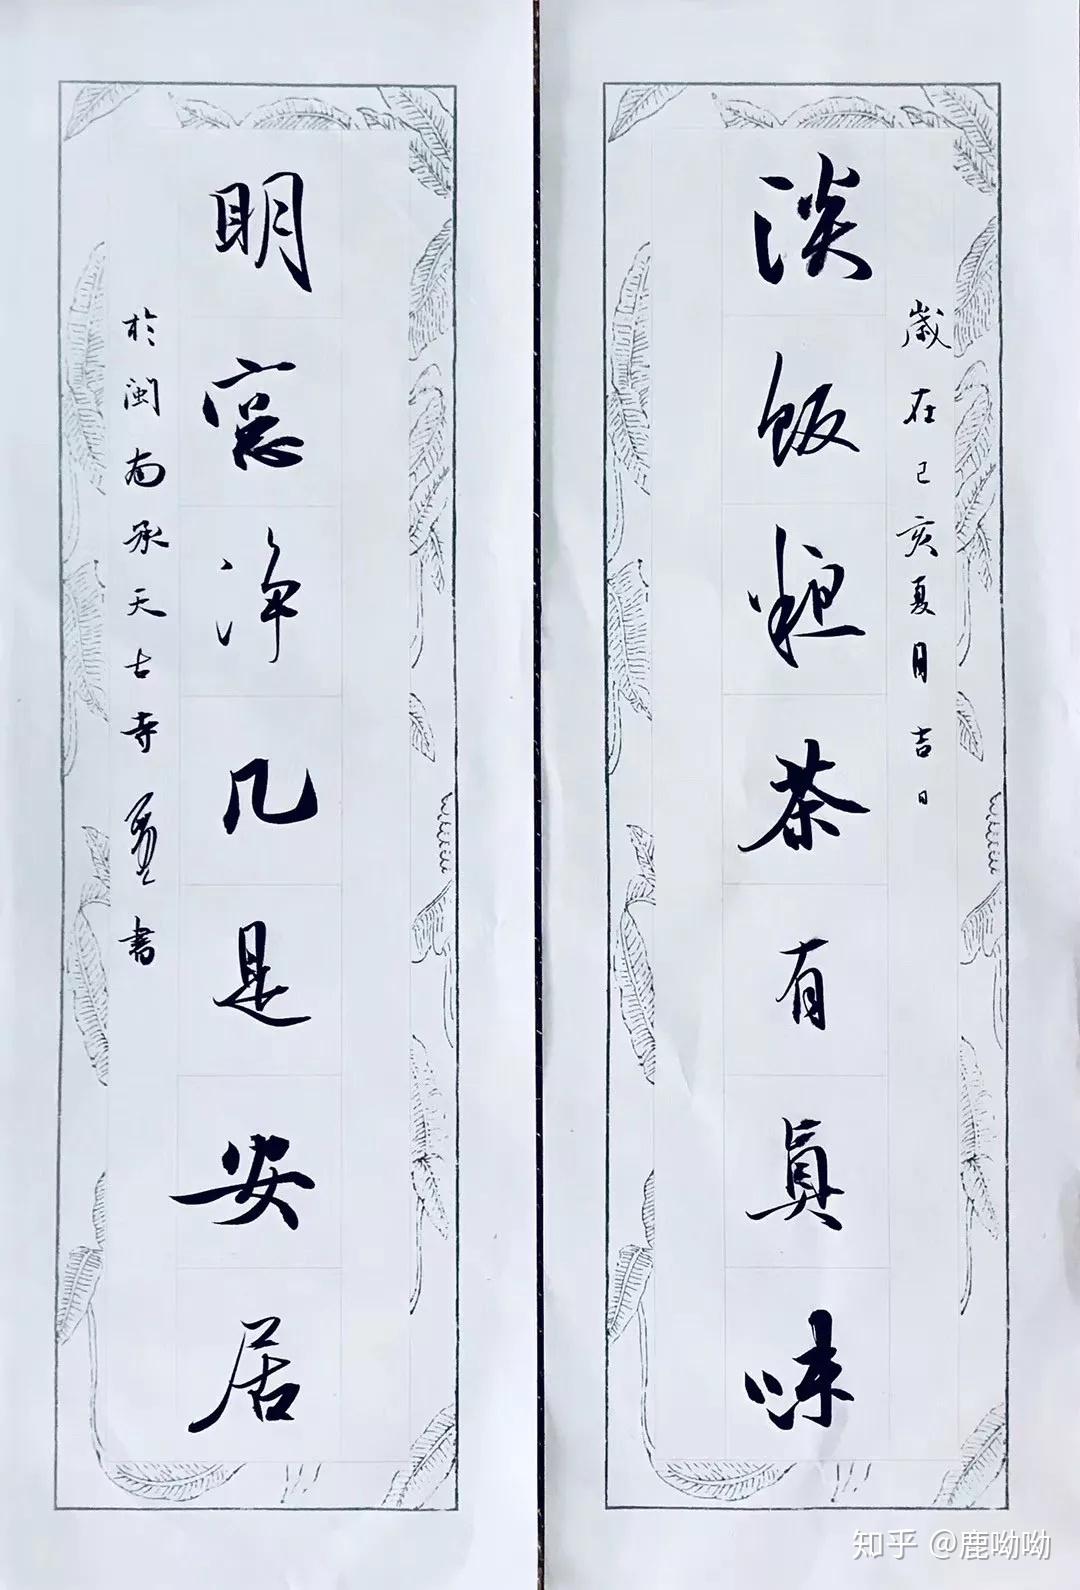 歲在己亥夏月吉日
淡飯粗茶有真味
明窓淨几是安居
於閩南承天古寺書
知乎 @鹿呦呦